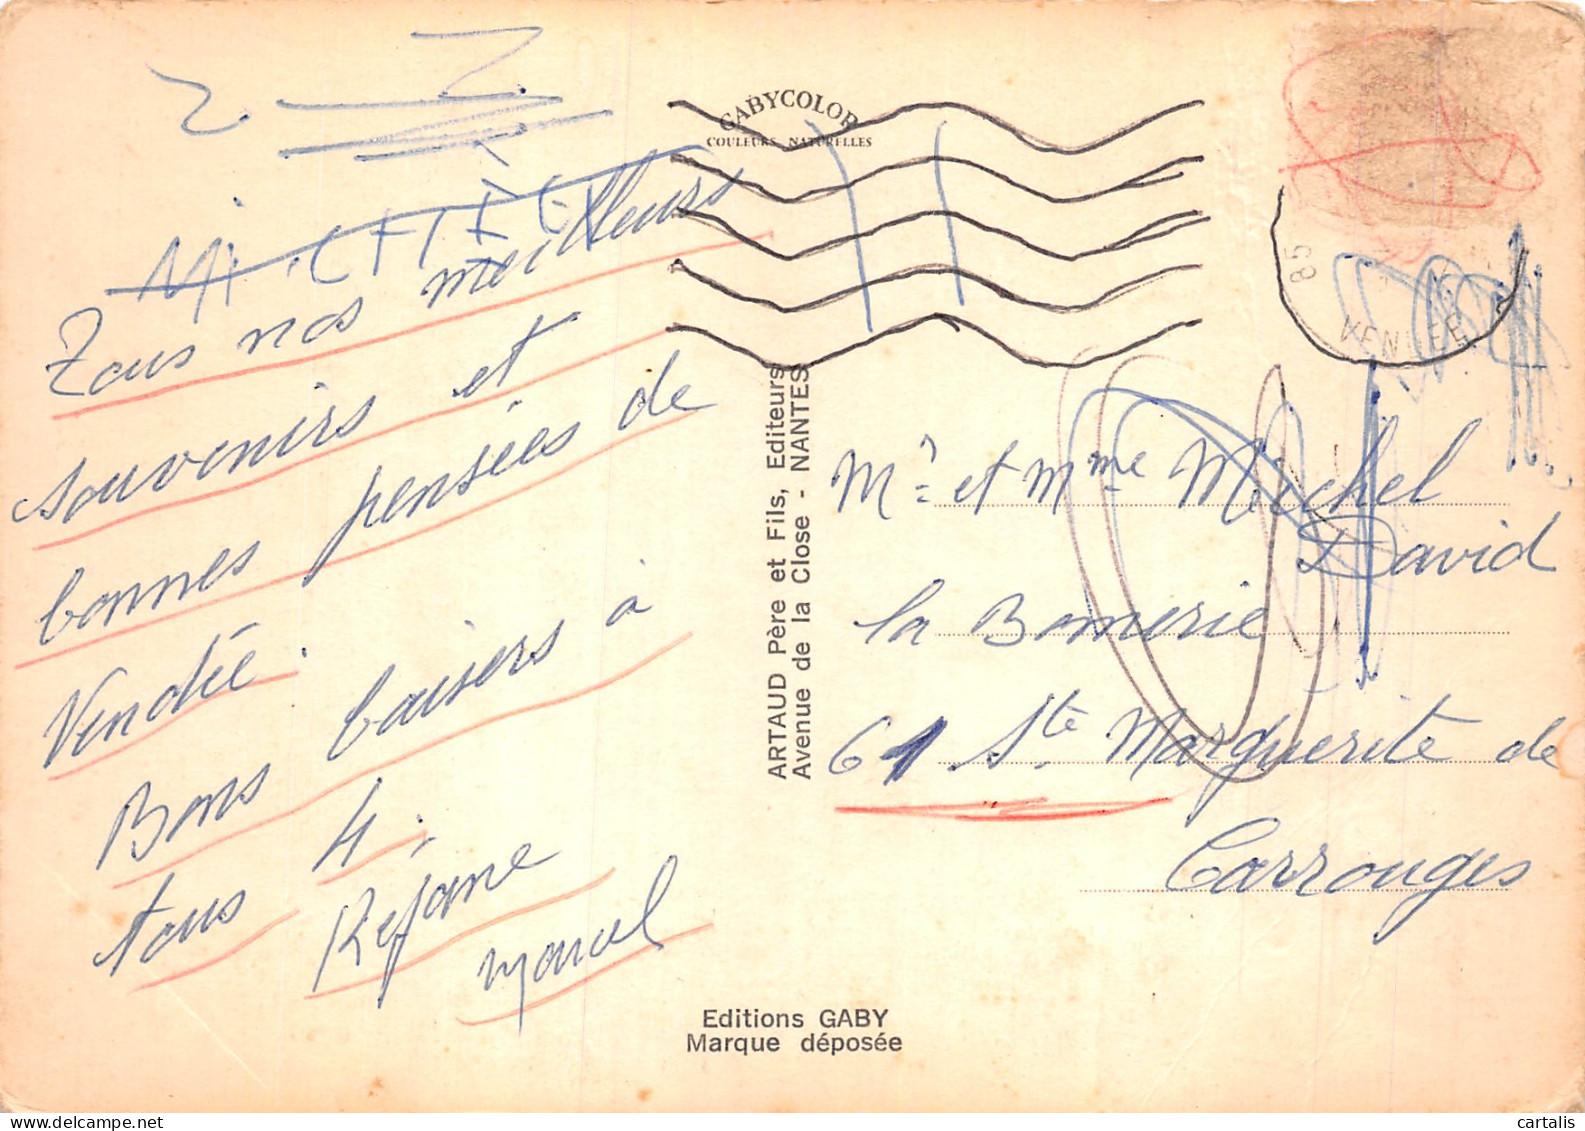 GABYCOLOR
COULEURS NATURELLES
Tous nos meilleurs
souvenirs et
bonnes pensées de
Vendée.
Bons baisers à
tous 4.
Rejane
Marcel
ARTAUD Père et Fils, Editeurs
Avenue de la Close - NANTES
85
VENDEE
Mr et Mme Michel
David
la Bomerie
61 Ste Marguerite de
Carrouges
Editions GABY
Marque déposée
delcampe.net
cartalis